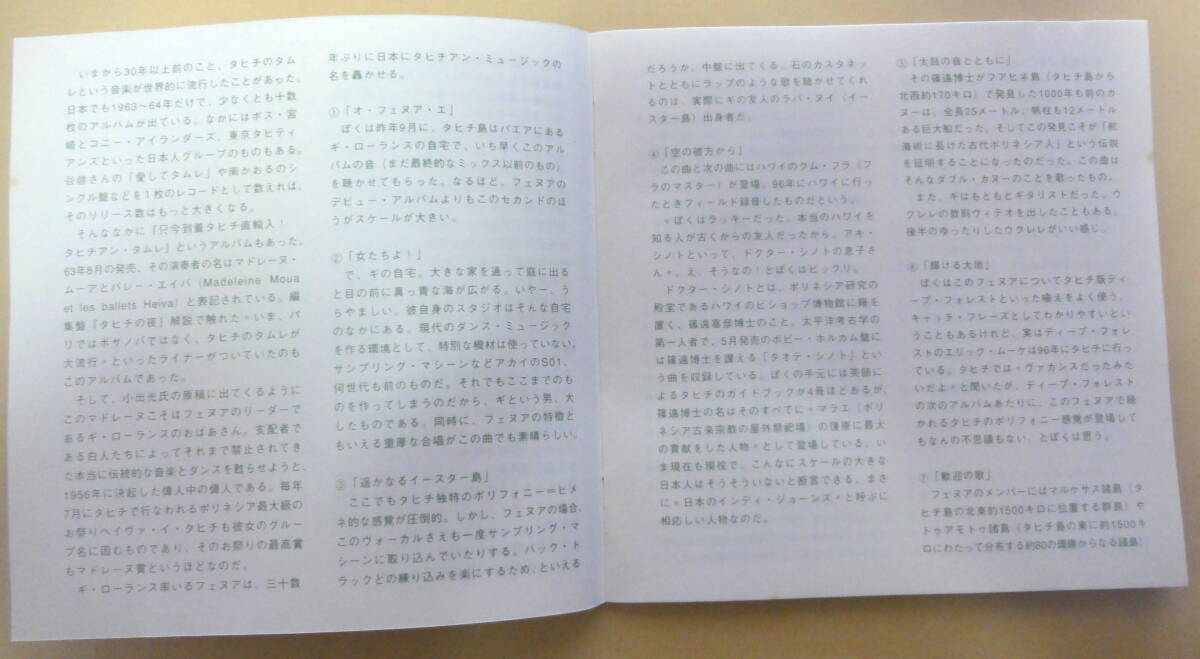 いまから30年以上前のこと、タヒチのタム
レという音楽が世界的に流行したことがあった。
日本でも1963〜64年だけで、少なくとも十数
枚のアルバムが出ている。なかにはボス・宮
崎とコニー・アイランダーズ、東京タヒティ
アンズといった日本人グループのものもある。
谷啓さんの『愛してタムレ』や南かおるのシ
ングル盤などを1枚のレコードとして数えれば、
そのリリース数はもっと大きくなる。
そんななかに『只今到着タヒチ直輸入!
タヒチアン・タムレ』というアルバムもあった。
63年8月の発売、その演奏者の名はマドレーヌ・
ムーアとバレー・エイバ（Madeleine Moua
et les ballets Heiva）と表記されている。編
集盤『タヒチの夜』解説で触れた〝いま、パ
リではボサノバではなく、タヒチのタムレが
大流行〟といったライナーがついていたのも
このアルバムであった。
そして、小出光氏の原稿に出てくるように
このマドレーヌこそはフェヌアのリーダーで
あるギ・ローランスのおばあさん。支配者で
ある白人たちによってそれまで禁止されてき
た本当に伝統的な音楽とダンスを甦らせようと、
1956年に決起した偉人中の偉人である。毎年
7月にタヒチで行なわれるポリネシア最大級の
お祭りヘイヴァ・イ・タヒチも彼女のグルー
プ名に因むものであり、そのお祭りの最高賞
もマドレーヌ賞というほどなのだ。
ギ・ローランス率いるフェヌアは、三十数
年ぶりに日本にタヒチアン・ミュージックの
名を轟かせる。
①「オ・フェヌア・エ」
ぼくは昨年9月に、タヒチ島はパエアにある
ギ・ローランスの自宅で、いち早くこのアル
バムの音（まだ最終的なミックス以前のもの）
を聴かせてもらった。なるほど、フェヌアの
デビュー・アルバムよりもこのセカンドのほ
うがスケールが大きい。
②「女たちよ!」
で、ギの自宅。大きな家を通って庭に出る
と目の前に真っ青な海が広がる。いやー、う
らやましい。彼自身のスタジオはそんな自宅
のなかにある。現代のダンス・ミュージック
を作る環境として、特別な機材は使っていない。
サンプリング・マシーンなどアカイのS01、
何世代も前のものだ。それでもここまでのも
のを作ってしまうのだから、ギという男、大
したものである。同時に、フェヌアの特徴と
もいえる重厚な合唱がこの曲でも素晴らしい。
③「遥かなるイースター島」
ここでもタヒチ独特のポリフォニー＝ヒメ
ネ的な感覚が圧倒的。しかし、フェヌアの場合、
このヴォーカルさえも一度サンプリング・マ
シーンに取り込んでいたりする。バック・ト
ラックとの練り込みを楽にするため、といえる
だろうか。中盤に出てくる、石のカスタネッ
トとともにラップのような歌を聴かせてくれ
るのは、実際にギの友人のラパ・ヌイ（イー
スター島）出身者だ。
④「空の彼方から」
この曲と次の曲にはハワイのクム・フラ（フ
ラのマスター）が登場。96年にハワイに行っ
たときフィールド録音したものだという。
〝ぼくはラッキーだった。本当のハワイを
知る人が古くからの友人だったから。アキ・
シノトといって、ドクター・シノトの息子さ
ん〟。え、そうなの！とぼくはビックリ。
ドクター・シノトとは、ポリネシア研究の
殿堂であるハワイのビショップ博物館に籍を
置く、篠遠喜彦博士のこと。太平洋考古学の
第一人者で、5月発売のボビー・ホルカム盤に
は篠遠博士を讃える「タオテ・シノト」とい
う曲を収録している。ぼくの手元には英語に
よるタヒチのガイドブックが4冊ほどあるが、
篠遠博士の名はそのすべてに〝マラエ（ポリ
ネシア古来宗教の屋外祭祀場）の復元に最大
の貢献をした人物〟として登場している。い
ま現在も現役で、こんなにスケールの大きな
日本人はそうそういないと断言できる、まさ
に〝日本のインディ・ジョーンズ〟と呼ぶに
相応しい人物なのだ。
⑤「太鼓の音とともに」
その篠遠博士がフアヒネ島（タヒチ島から
北西約170キロ）で発見した1000年も前のカ
ヌーは、全長25メートル、帆柱も12メートル
ある巨大船だった。そしてこの発見こそが「航
海術に長けた古代ポリネシア人」という伝説
を証明することになったのだった。この曲は
そんなダブル・カヌーのことを歌ったもの。
また、ギはもともとギタリストだった。ウ
クレレの教則ヴィデオを出したこともある。
後半のゆったりしたウクレレがいい感じ。
⑥「輝ける大地」
ぼくはこのフェヌアについてタヒチ版ディ
ープ・フォレストといった喩えをよく使う。
キャッチ・フレーズとしてわかりやすいとい
うこともあるけれど、実はディープ・フォレ
ストのエリック・ムーケは96年にタヒチに行っ
ている。タヒチでは〝ヴァカンスだったみた
いだよ〟と聞いたが、ディープ・フォレスト
の次のアルバムあたりに、このフェヌアで聴
かれるタヒチのポリフォニー感覚が登場して
もなんの不思議もない、とぼくは思う。
⑦「歓迎の歌」
フェヌアのメンバーにはマルケサス諸島（タ
ヒチ島の北東約1500キロに位置する群島）や
トゥアモトゥ諸島（タヒチ島の東に約1500キ
ロにわたって分布する約80の環礁からなる諸島）